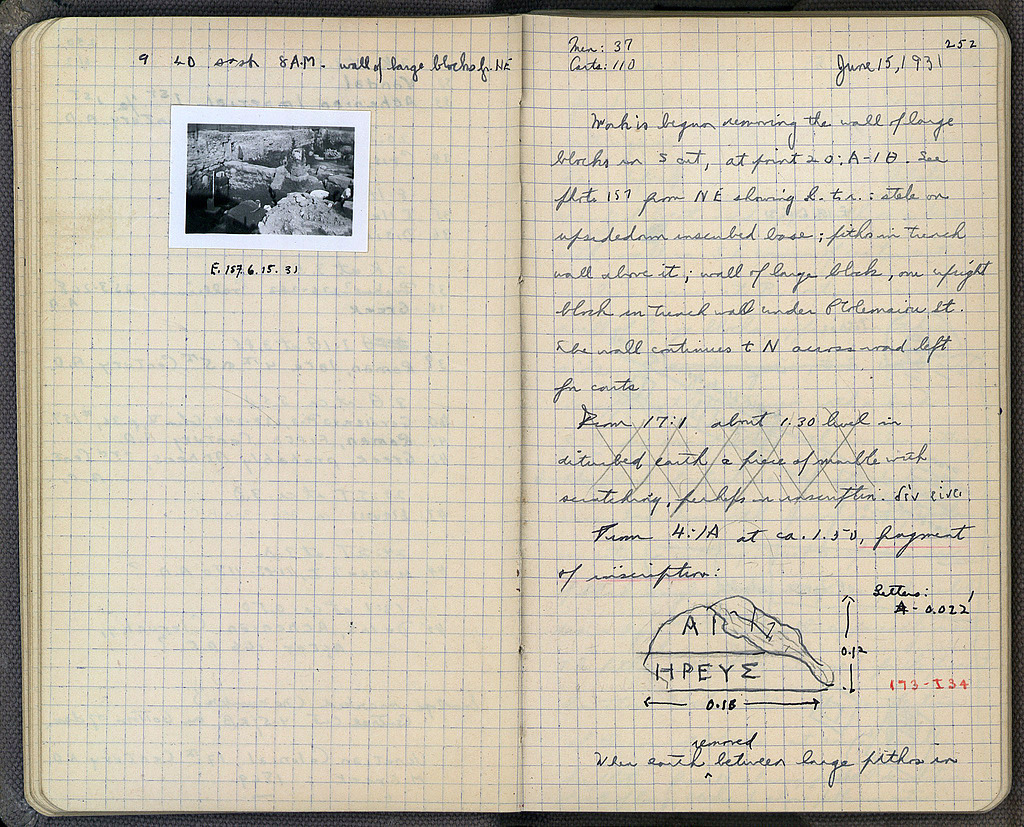 9 LD sash 8 A.M. - wall of large blocks fr. NE
E. 157. 6. 15. 31
Men: 37
Carts: 110
252
June 15, 1931
Work is begun removing the wall of large
blocks in S cut, at point 20: A-1Θ. See
photo 157 from NE showing l. to r.: stele on
upsidedown inscribed base; pithos in trench
wall above it; wall of large block, one upright
block in trench wall under Ptolemaiou St.
The wall continues to N across road left
for carts
From 17:1 about 1.30 level in
disturbed earth a piece of marble with
scratching, perhaps an inscription.
From 4:1A at ca. 1.50, fragment
of inscription:
Letters:
A - 0.022
ΑΙ
ΗΡΕΥΣ
0.12
0.18
173-I 34
removed
When earth ‸ between large pithos in